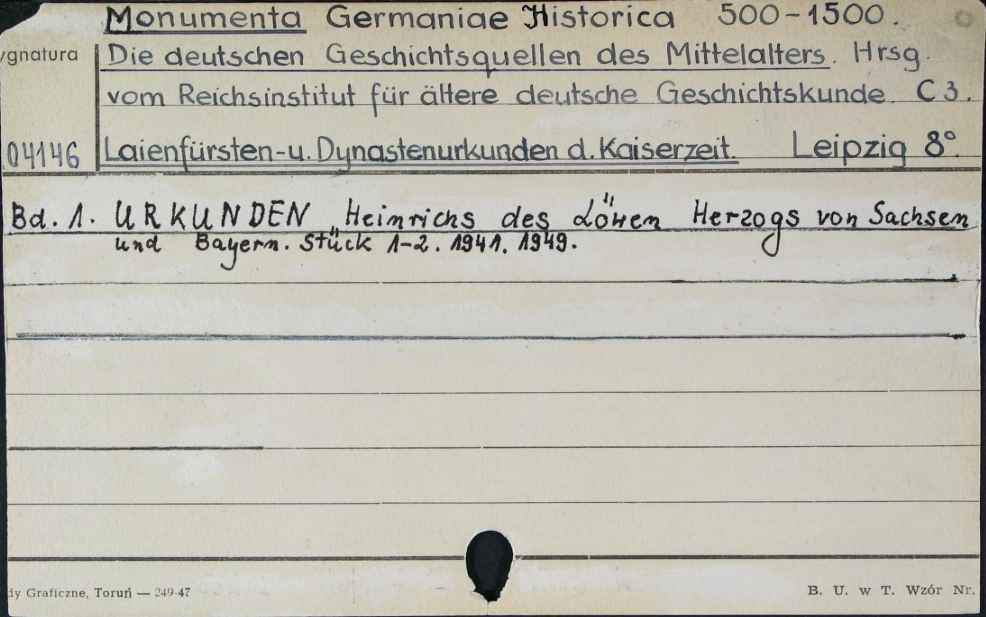 Monumenta Germaniae Historica 500-1500.
ygnatura Die deutschen Geschichtsquellen des Mittelalters. Hrsg.
vom Reichsinstitut für ältere deutsche Geschichtskunde. C 3.
04146 Laienfürsten-u. Dynastenurkunden d. Kaiserzeit. Leipzig 8°.
Bd. 1. URKUNDEN Heinrichs des Löwen Herzogs von Sachsen
und Bayern. Stück 1-2. 1941. 1949.
dy Graficzne, Toruń — 249-47
B. U. w T. Wzór Nr.